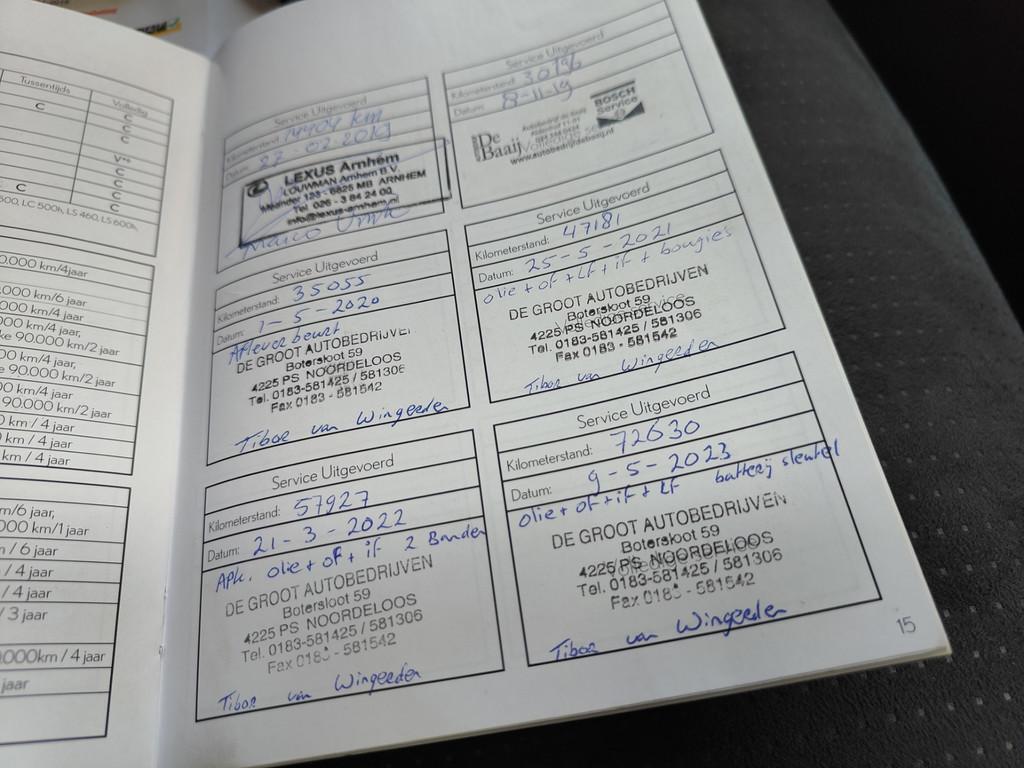 Tussentijds Volledig
C C
C
V**
C
C
C C
500, LC 500h, LS 460, LS 600h,
0.000 km/4jaar
000 km/6 jaar
000 km/4 jaar,
ke 90.000 km/2 jaar
00 km/4 jaar,
e 90.000 km/2 jaar
00 km/4 jaar
90.000 km/2 jaar
km / 4 jaar
km / 4 jaar
km / 4 jaar
m/6 jaar,
000 km/1 jaar
m / 6 jaar
/ 4 jaar
/ 4 jaar
/ 3 jaar
.000km / 4 jaar
jaar
Service Uitgevoerd
Kilometerstand: 14404 km
Datum: 22-02-2019
LEXUS Arnhem
LOUWMAN Arnhem B.V.
Meander 123 - 6825 MB ARNHEM
Tel. 026 - 3 84 24 00
info@lexus-arnhem.nl
Service Uitgevoerd
Kilometerstand:
Datum: 8-11-19
De Baaij
BOSCH Service
www.autobedrijfdebaaij.nl
Service Uitgevoerd
Kilometerstand: 35055
Datum: 1-5-2020
Afleverbeurt
DE GROOT AUTOBEDRIJVEN
Botersloot 59
4225 PS NOORDELOOS
Tel. 0183-581425 / 581306
Fax 0183 - 581542
Tibor van Wingerden
Service Uitgevoerd
Kilometerstand: 47181
Datum: 25-5-2021
olie + of + lf + if + bougies
DE GROOT AUTOBEDRIJVEN
Botersloot 59
4225 PS NOORDELOOS
Tel. 0183-581425 / 581306
Fax 0183 - 581542
Tibor van Wingerden
Service Uitgevoerd
Kilometerstand: 57927
Datum: 21-3-2022
Apk. olie + of + if 2 Banden
DE GROOT AUTOBEDRIJVEN
Botersloot 59
4225 PS NOORDELOOS
Tel. 0183-581425 / 581306
Fax 0183 - 581542
Tibor van Wingerden
Service Uitgevoerd
Kilometerstand: 72630
Datum: 9-5-2023
olie + of + if + lf batterij sleutel
DE GROOT AUTOBEDRIJVEN
Botersloot 59
4225 PS NOORDELOOS
Tel. 0183-581425 / 581306
Fax 0183 - 581542
Tibor van Wingerden
15